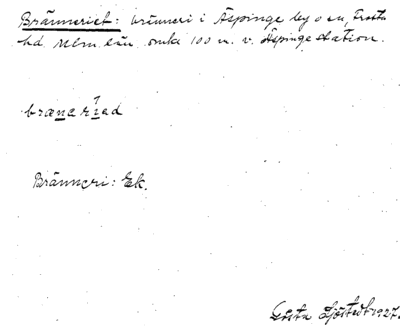 Bränneriet: bränneri i Äspinge by o sn, Frosta
hd. Mlm. län. omkr 100 m. v. Äspinge station.
brænaríad
Bränneri: Ek.
Gösta Sjöstedt 1927.